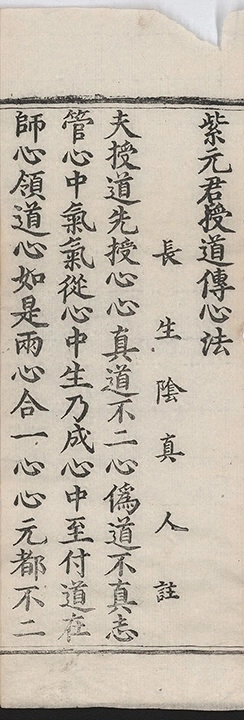 紫元君授道傳心法
長生陰真人註
夫授道先授心心真道不二心偽道不真志
管心中氣氣從心中生乃成心中至付道在
師心領道心如是兩心合一心心元都不二